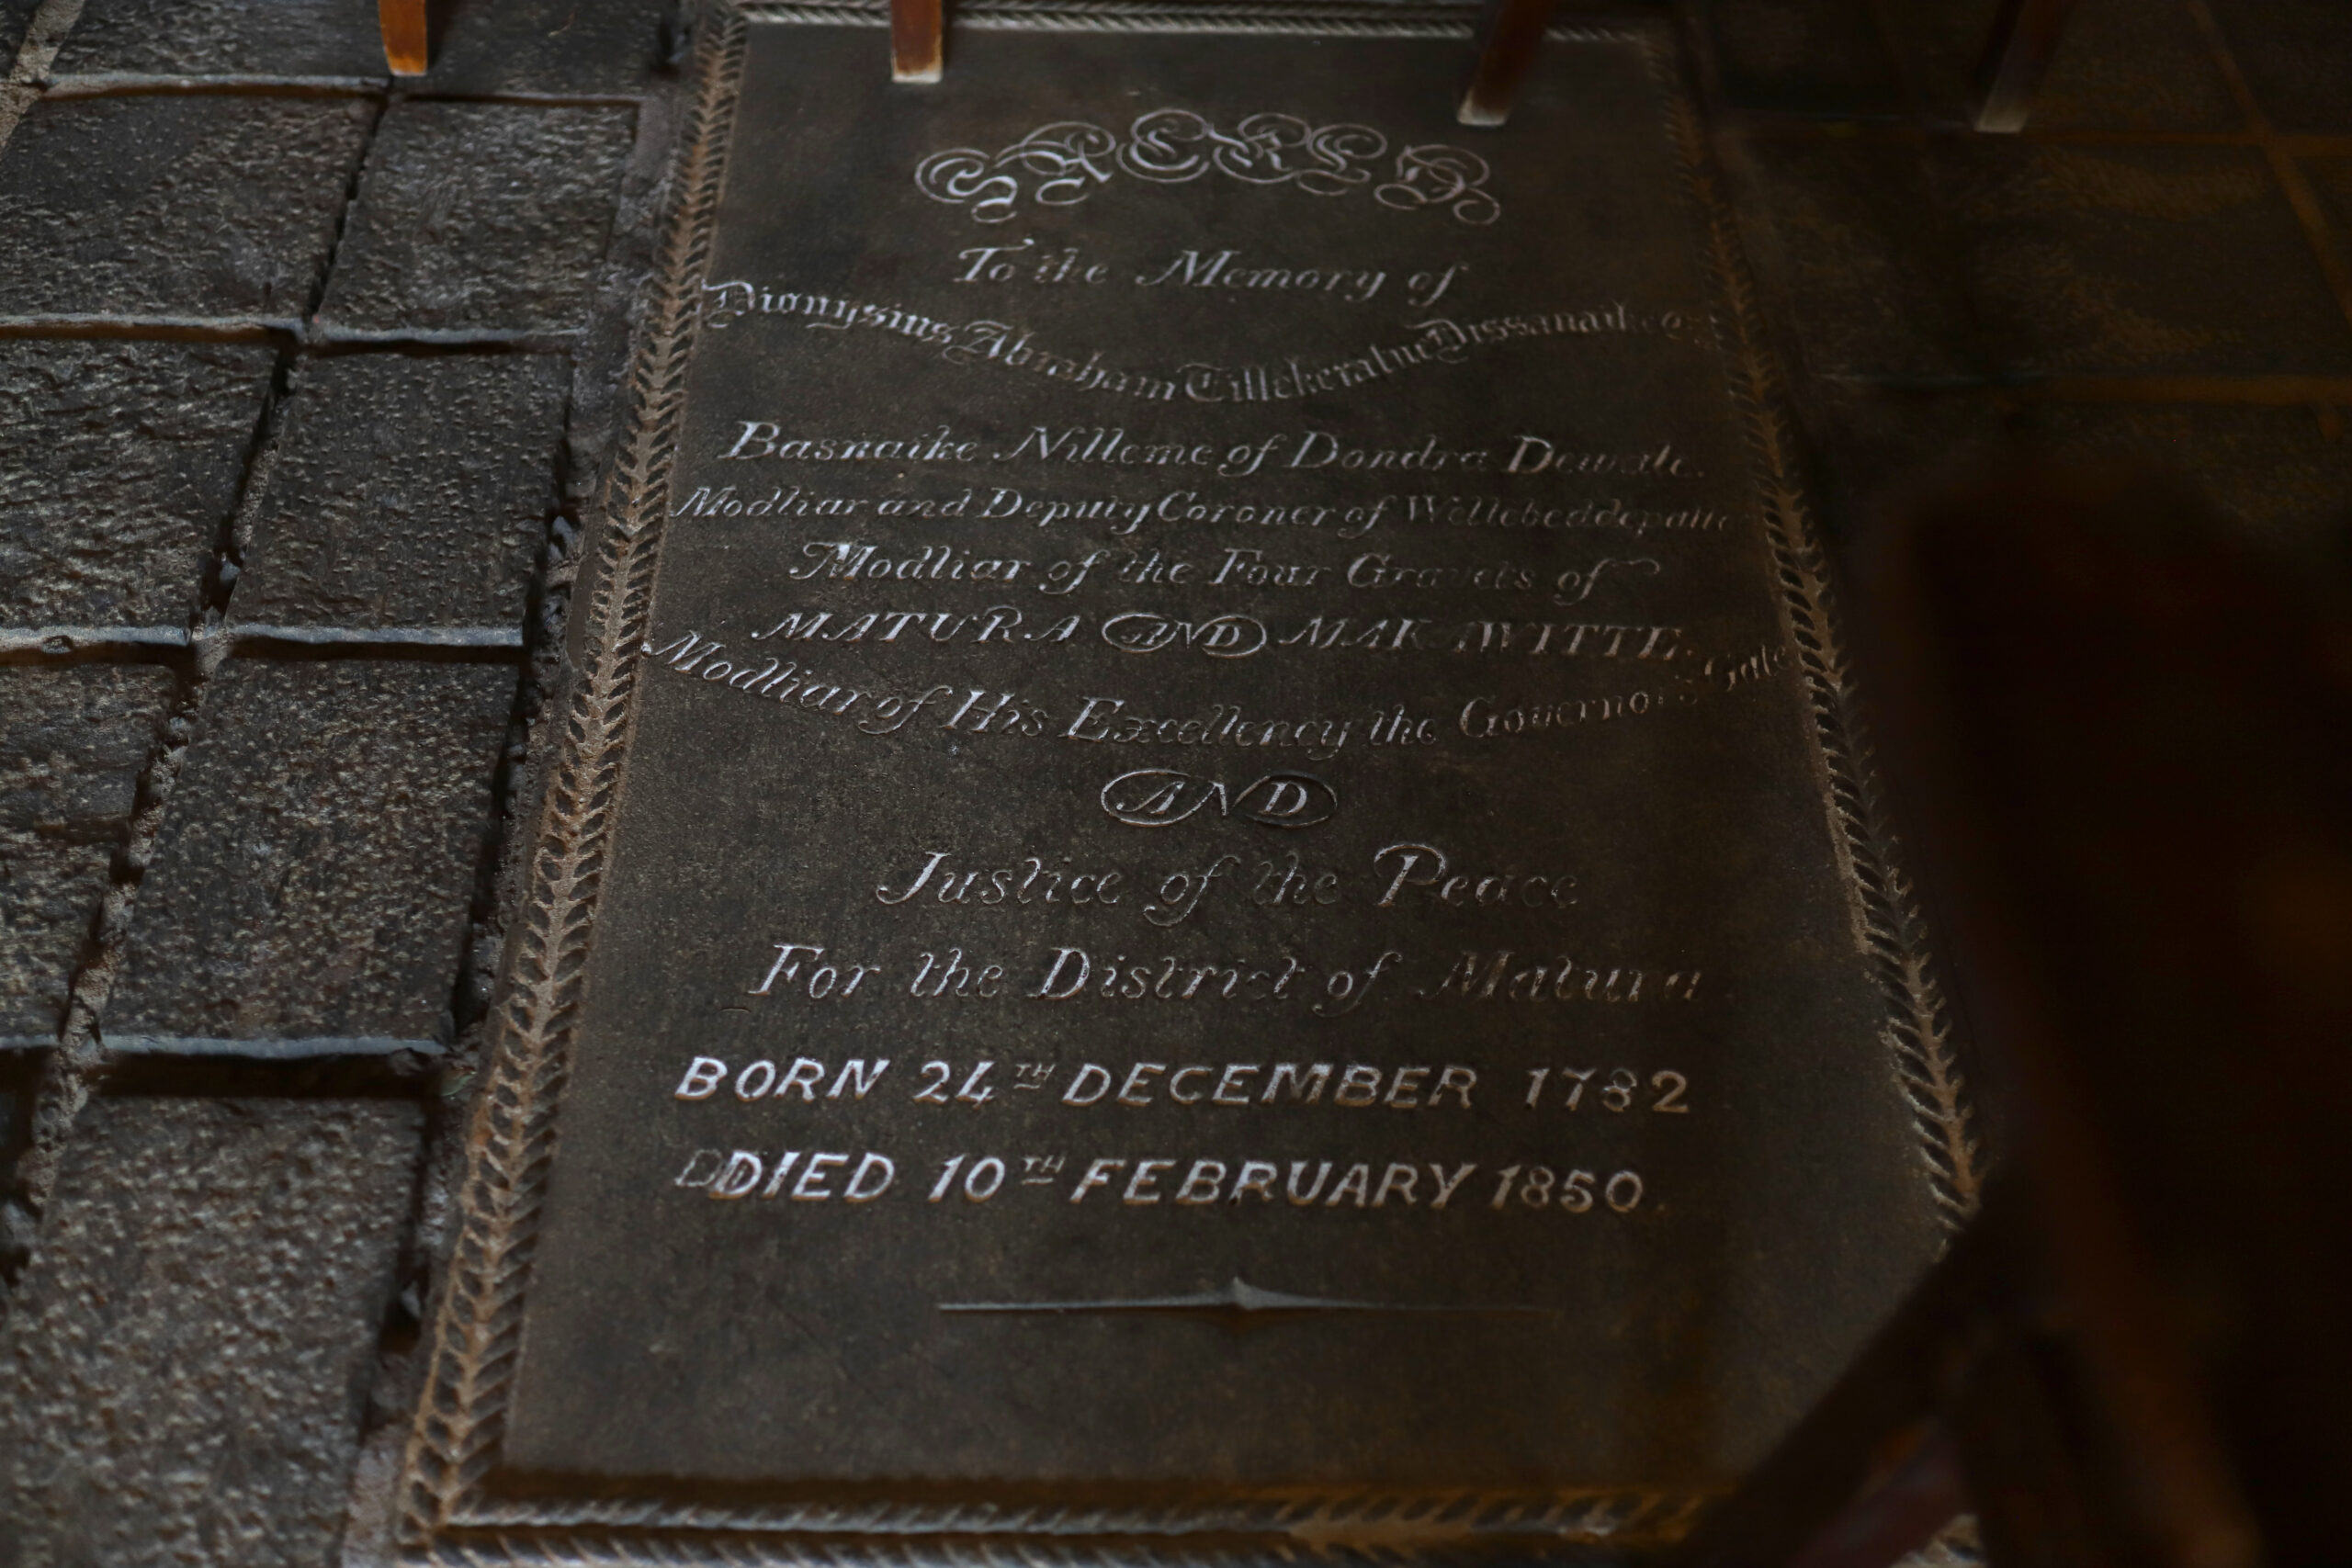 SACRED
To the Memory of
Dionysius Abraham Tillekeratne Dissanaike
Basnaike Nilleme of Dondra Dewale.
Modliar and Deputy Coroner of Wellebeddepatte
Modliar of the Four Gravets of
MATURA AND MAKAWITTE.
Modliar of His Excellency the Governor's Gate
AND
Justice of the Peace
For the District of Matura
BORN 24TH DECEMBER 1782
DIED 10TH FEBRUARY 1850.